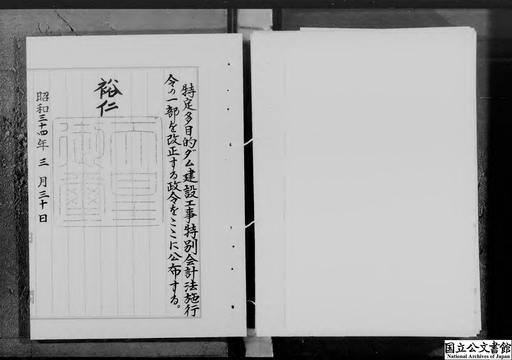 特定多目的ダム建設工事特別会計法施行
令の一部を改正する政令をここに公布する。
裕仁
天皇
御璽
昭和三十四年三月三十日
国立公文書館
National Archives of Japan